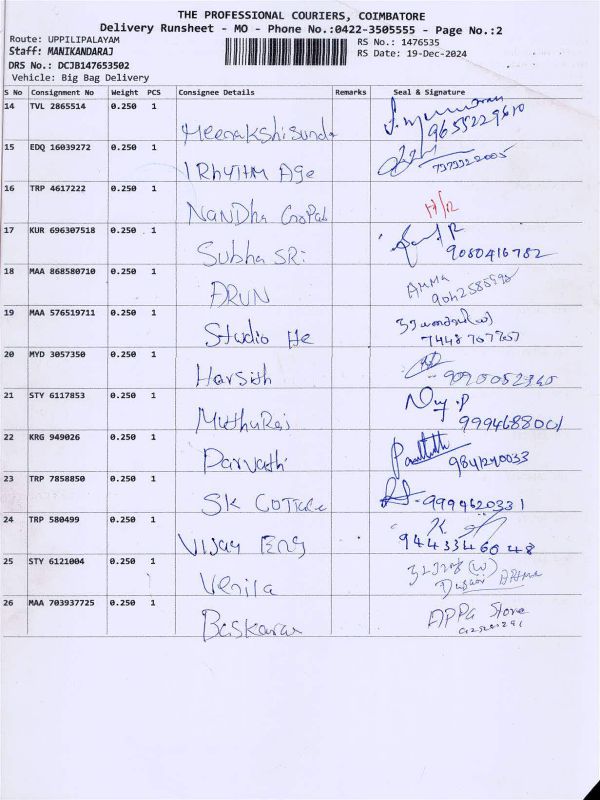 THE PROFESSIONAL COURIERS, COIMBATORE
Delivery Runsheet - MO - Phone No.:0422-3505555 - Page No.:2
Route: UPPILIPALAYAM
RS No.: 1476535
Staff: MANIKANDARAJ
RS Date: 19-Dec-2024
DRS No.: DCJB147653502
Vehicle: Big Bag Delivery
S No Consignment No Weight PCS Consignee Details Remarks Seal & Signature
14 TVL 2865514 0.250 1
Meenakshisunda 9655229610
15 EDQ 16039272 0.250 1
RhyTHM Age 7373922005
16 TRP 4617222 0.250 1
NanDha Gopal H/R
17 KUR 696307518 0.250 1
Subha SRi 9080416782
18 MAA 868580710 0.250 1
ARUN AMMA
19 MAA 576519711 0.250 1
Studio He
20 MYD 3057350 0.250 1
Harsith
21 STY 6117853 0.250 1
MuthuRaj
22 KRG 949026 0.250 1
Parvathi 9841290033
23 TRP 7858850 0.250 1
SK 9994620331
24 TRP 580499 0.250 1
Vijay Eng K. 9443346048
25 STY 6121004 0.250 1
Venila
26 MAA 703937725 0.250 1
Baskaran APPa Store